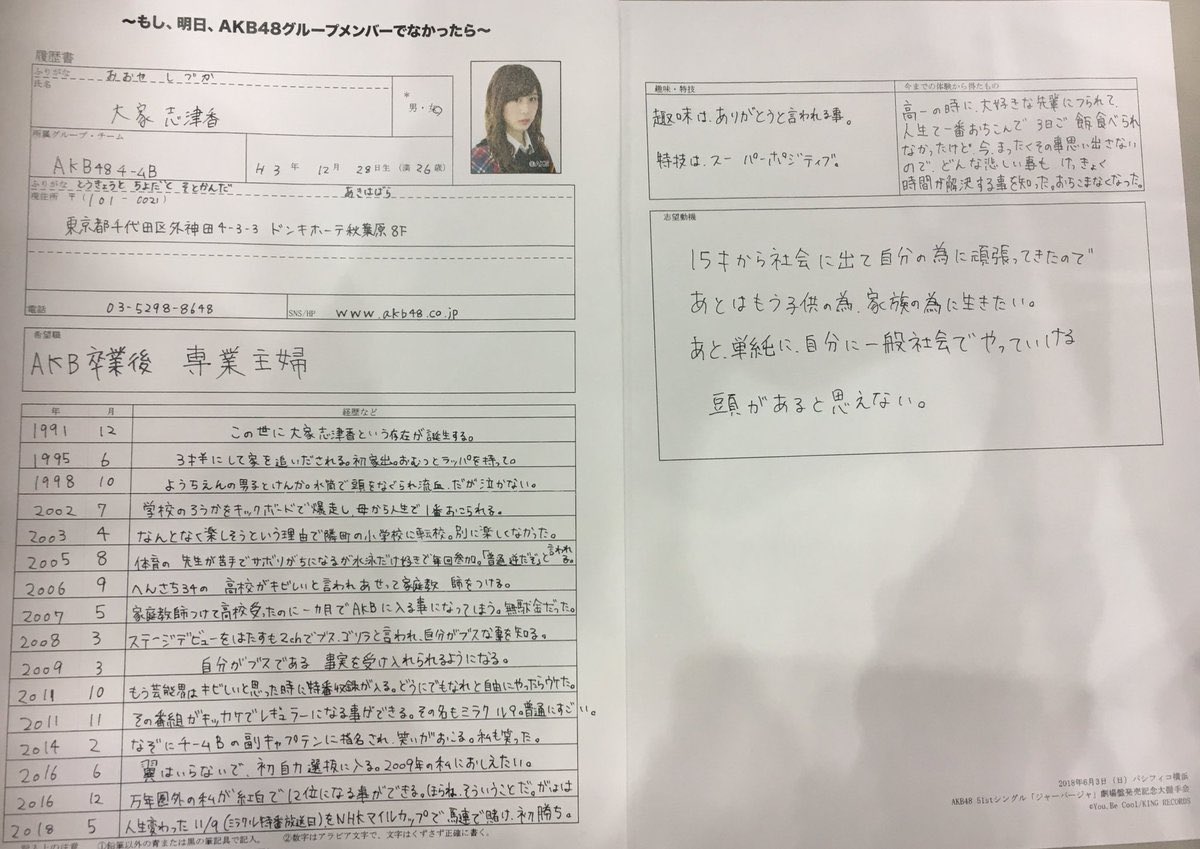 ～もし、明日、AKB48グループメンバーでなかったら～
履歴書
ふりがな おおや しづか
氏名
大家 志津香
＊
男・女
所属グループ・チーム
AKB48 チームB
H3年 12月 28日生 (満 26歳)
ふりがな とうきょうと ちよだく そとかんだ あきはばら
現住所 〒(101-0021)
東京都千代田区外神田4-3-3 ドンキホーテ秋葉原8F
電話 03-5298-8648
SNS/HP www.akb48.co.jp
希望職
AKB卒業後 専業主婦
年 月 経歴など
1991 12 この世に大家志津香という存在が誕生する。
1995 6 3才半にして家を追いだされる。初家出。おむつとラッパを持って。
1998 10 ようちえんの男子とけんか。水筒で頭をなぐられ流血。だが泣かない。
2002 7 学校のろうかをキックボードで爆走し、母から人生で1番おこられる。
2003 4 なんとなく楽しそうという理由で隣町の小学校に転校。別に楽しくなかった。
2005 8 体育の先生が苦手でサボりがちになるが水泳だけ好きで毎回参加。「普通逆だぞ」と言われる。
2006 9 へんさち34の高校がキビしいと言われあせって家庭教師をつける。
2007 5 家庭教師つけて高校受ったのに一カ月でAKBに入る事になってしまう。無駄金だった。
2008 3 ステージデビューをはたすも2chでブス、ゴリラと言われ、自分がブスな事を知る。
2009 3 自分がブスである事実を受け入れられるようになる。
2011 10 もう芸能界はキビしいと思った時に特番収録が入る。どうにでもなれと自由にやったらウケた。
2011 11 その番組がキッカケでレギュラーになる事ができる。その名もミラクル9。普通にすごい。
2014 2 なぞにチームBの副キャプテンに指名され、笑いがおこる。私も笑った。
2016 6 翼はいらないで、初自力選抜に入る。2009年の私におしえたい。
2016 12 万年圏外の私が紅白で12位になる事ができる。ほらね、そういうことだ。がはは
2018 5 人生変わった11/9(ミラクル特番放送日)をNHKマイルカップで馬連で賭け、初勝ち。
①鉛筆以外の青または黒の筆記具で記入。 ②数字はアラビア文字で、文字はくずさず正確に書く。
趣味・特技
趣味は、ありがとうと言われる事。
特技は、スーパーポジティブ。
今までの体験から得たもの
高一の時に、大好きな先輩にフられて、
人生で一番おちこんで3日ご飯食べられ
なかったけど、今、まったくその事思い出さない
ので、どんな悲しい事も けっきょく
時間が解決する事を知った。おちこまなくなった。
志望動機
15才から社会に出て自分の為に頑張ってきたので
あとはもう子供の為、家族の為に生きたい。
あと、単純に、自分に一般社会でやっていける
頭があると思えない。
2018年6月3日（日）パシフィコ横浜
AKB48 51stシングル「ジャーバージャ」劇場盤発売記念大握手会
©You, Be Cool/KING RECORDS